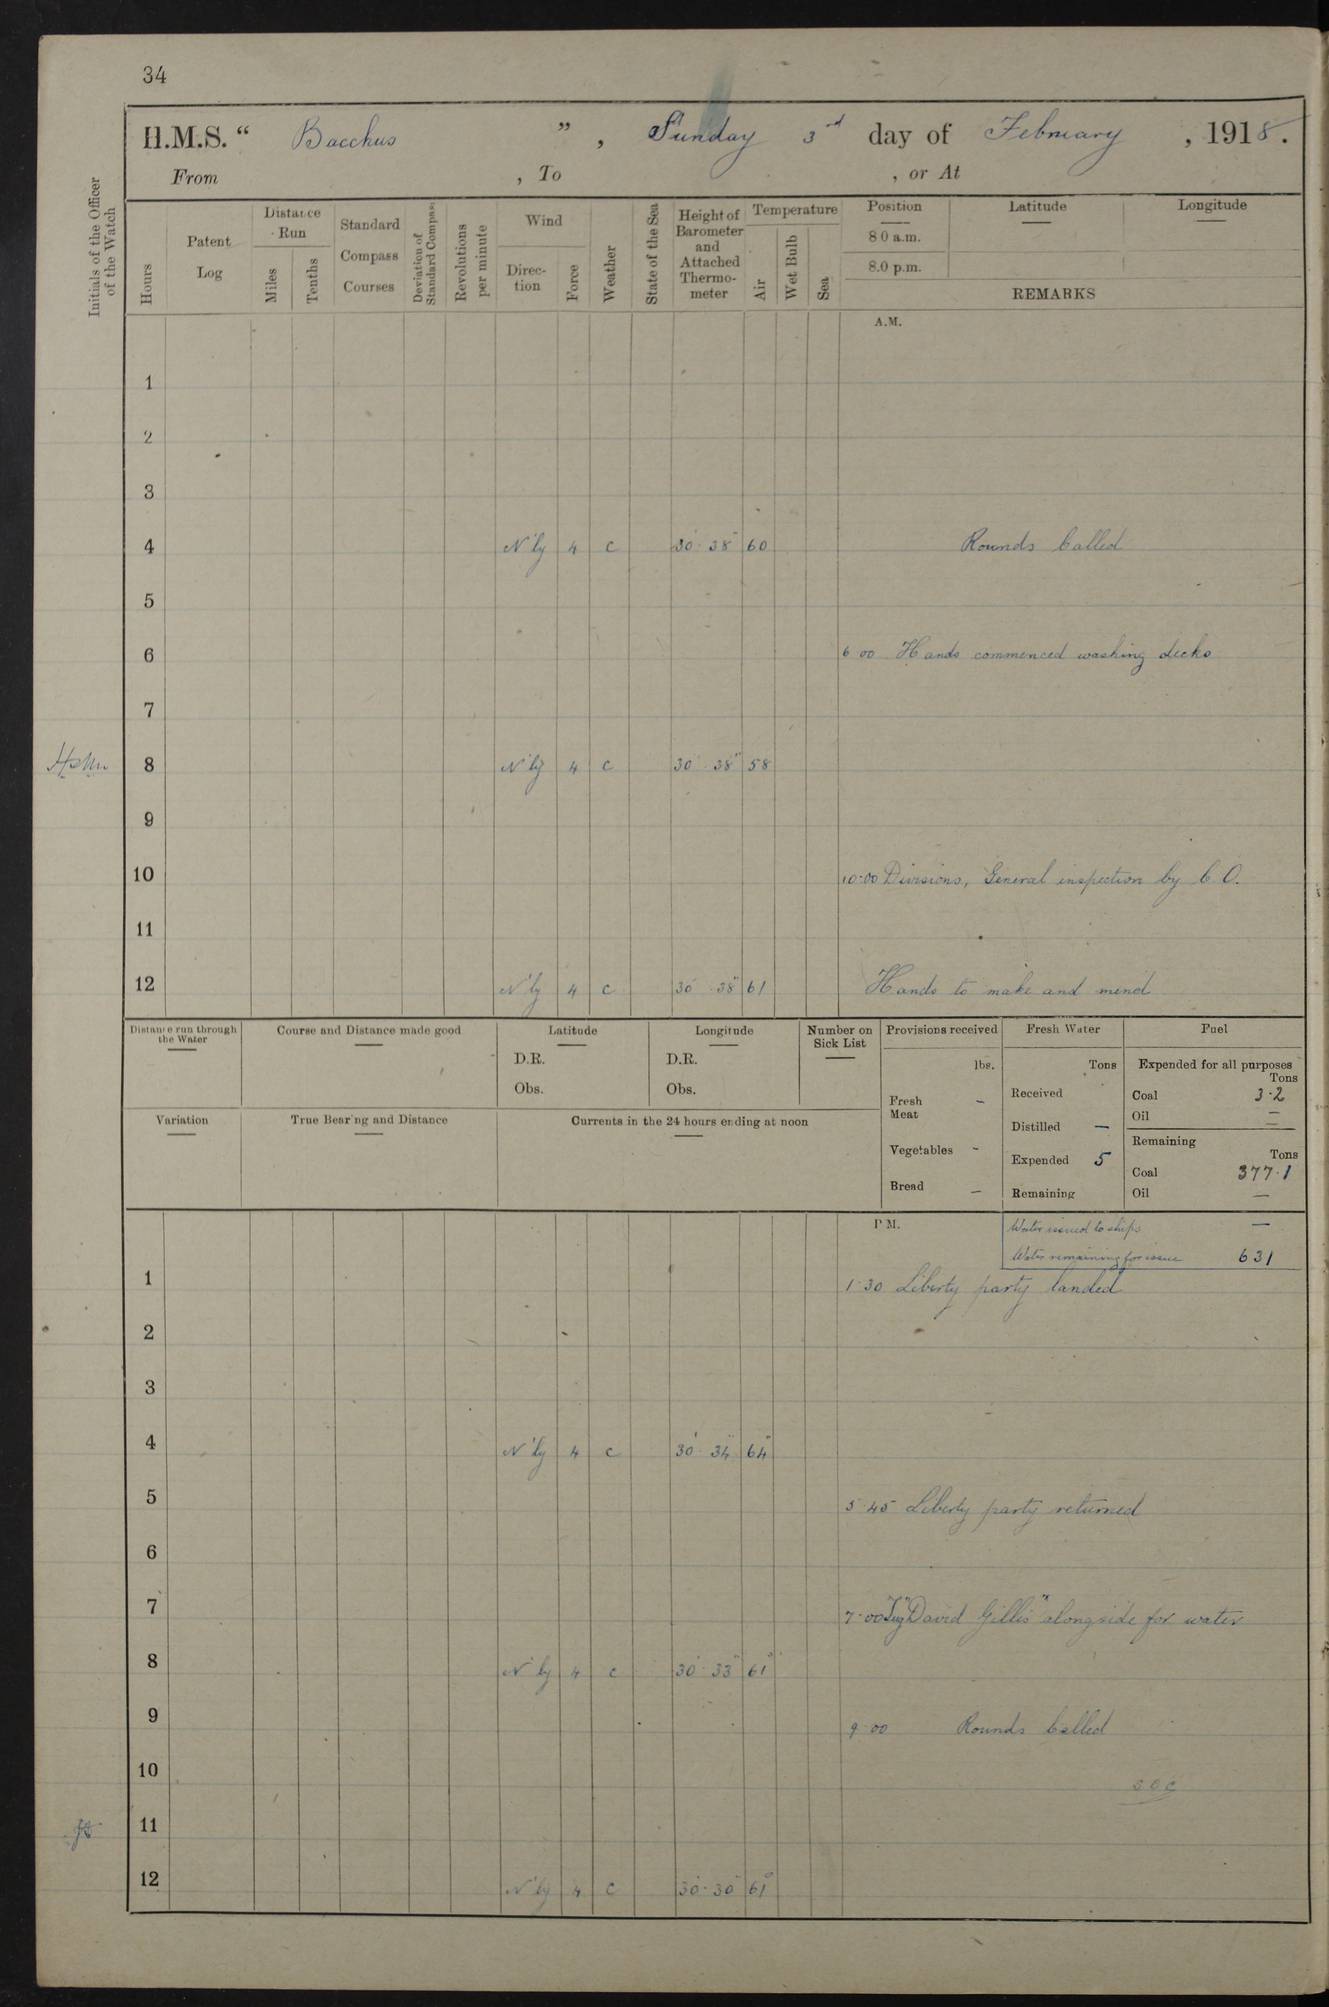 34
H.M.S. “ Bacchus ” , Sunday 3rd day of February , 1918.
From , To , or At
Initials of the Officer of the Watch
Hours
Patent Log
Distance Run
Miles
Tenths
Standard Compass Courses
Deviation of Standard Compass
Revolutions per minute
Wind
Direc-tion
Force
Weather
State of the Sea
Height of Barometer and Attached Thermo-meter
Temperature
Air
Wet Bulb
Sea
Position
8 0 a.m.
8.0 p.m.
Latitude
Longitude
REMARKS
A.M.
1
2
3
4 N'ly 4 c 30 · 38 60 Rounds Called
5
6 6 00 Hands commenced washing decks
7
8 N'ly 4 c 30 · 38 58
9
10 10·00 Divisions, General inspection by C.O.
11
12 N'ly 4 c 30 · 38 61 Hands to make and mend
Distance run through the Water
Course and Distance made good
Latitude
D.R.
Obs.
Longitude
D.R.
Obs.
Number on Sick List
Variation
True Bearing and Distance
Currents in the 24 hours ending at noon
Provisions received
lbs.
Fresh Meat –
Vegetables -
Bread –
Fresh Water
Tons
Received
Distilled —
Expended 5
Remaining
Fuel
Expended for all purposes
Tons
Coal 3·2
Oil —
Remaining
Tons
Coal 377·1
Oil —
P M.
Water issued to ships —
Water remaining for issue 631
1 1·30 Liberty party landed
2
3
4 N'ly 4 c 30 · 34 64
5 5·45 Liberty party returned
6
7 7·00 Tug "David Gillis" alongside for water
8 N'ly 4 c 30 · 33 61
9 9·00 Rounds Called
10
11
12 N'ly 4 c 30 · 30 61